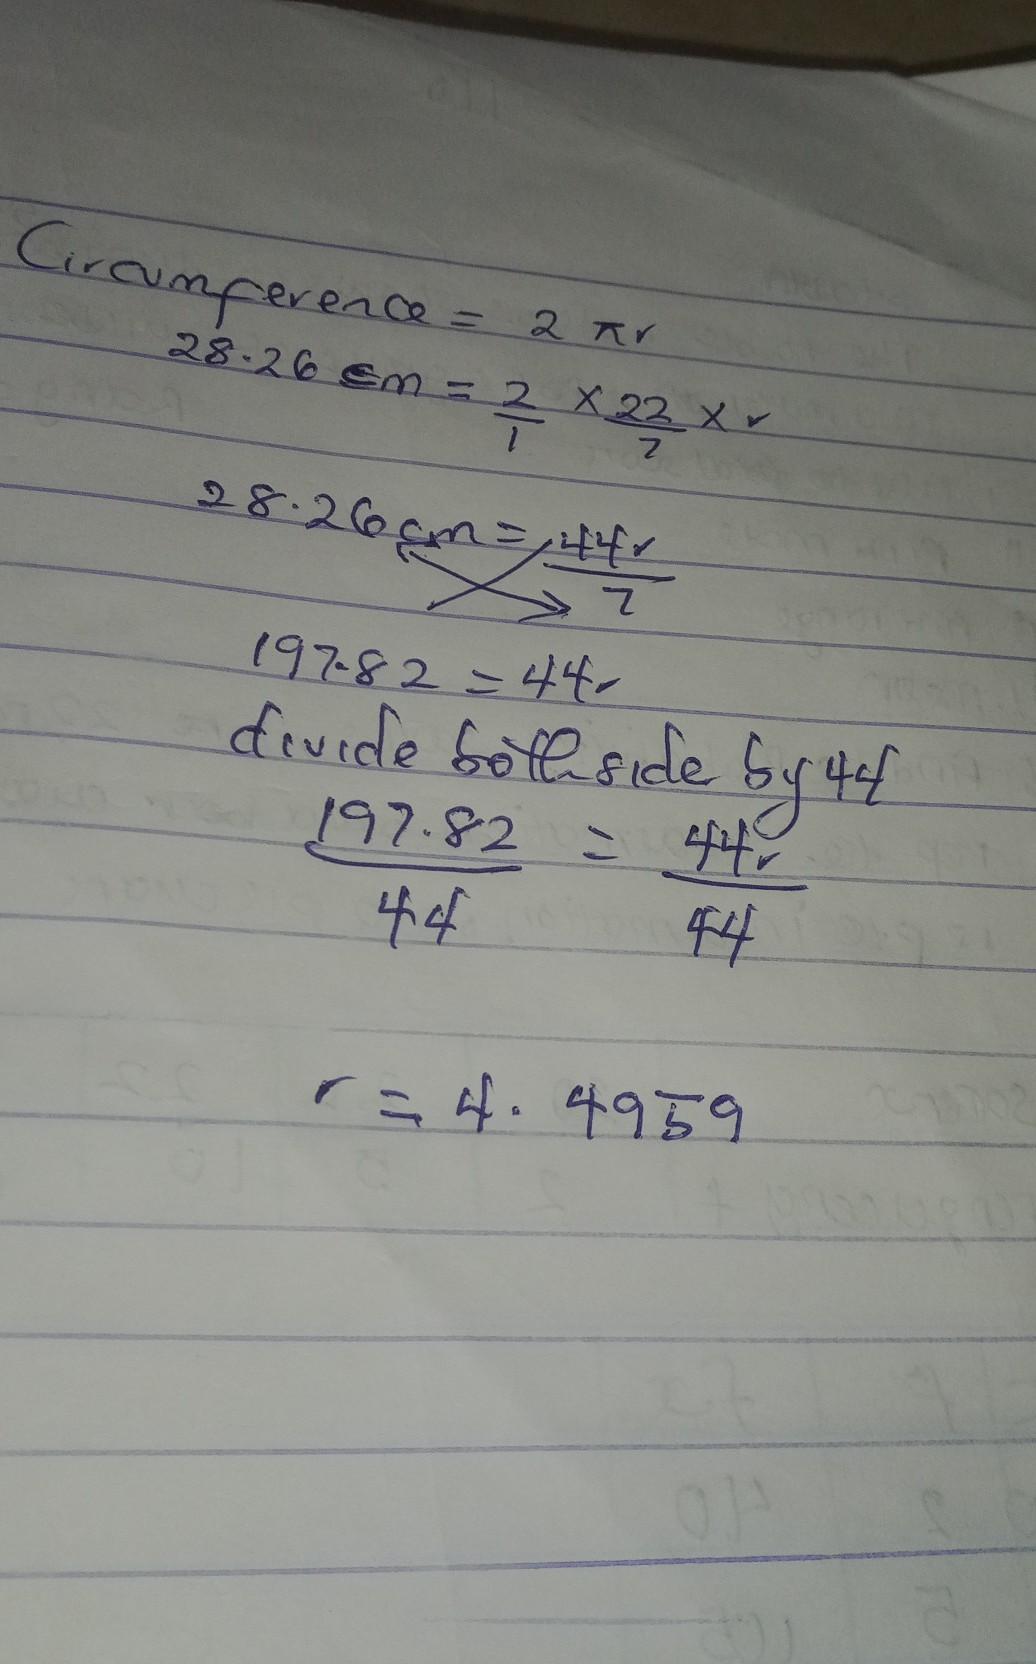 Circumference = 2 πr
28.26 cm = 2/1 × 22/7 × r
28.26cm = 44r/7
197.82 = 44r
divide both side by 44
197.82/44 = 44r/44
r = 4.4959